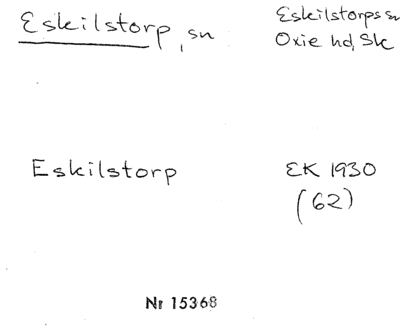 Eskilstorp, sn
Eskilstorps sn
Oxie hd, Sk
Eskilstorp
EK 1930
(62)
Nr 15368